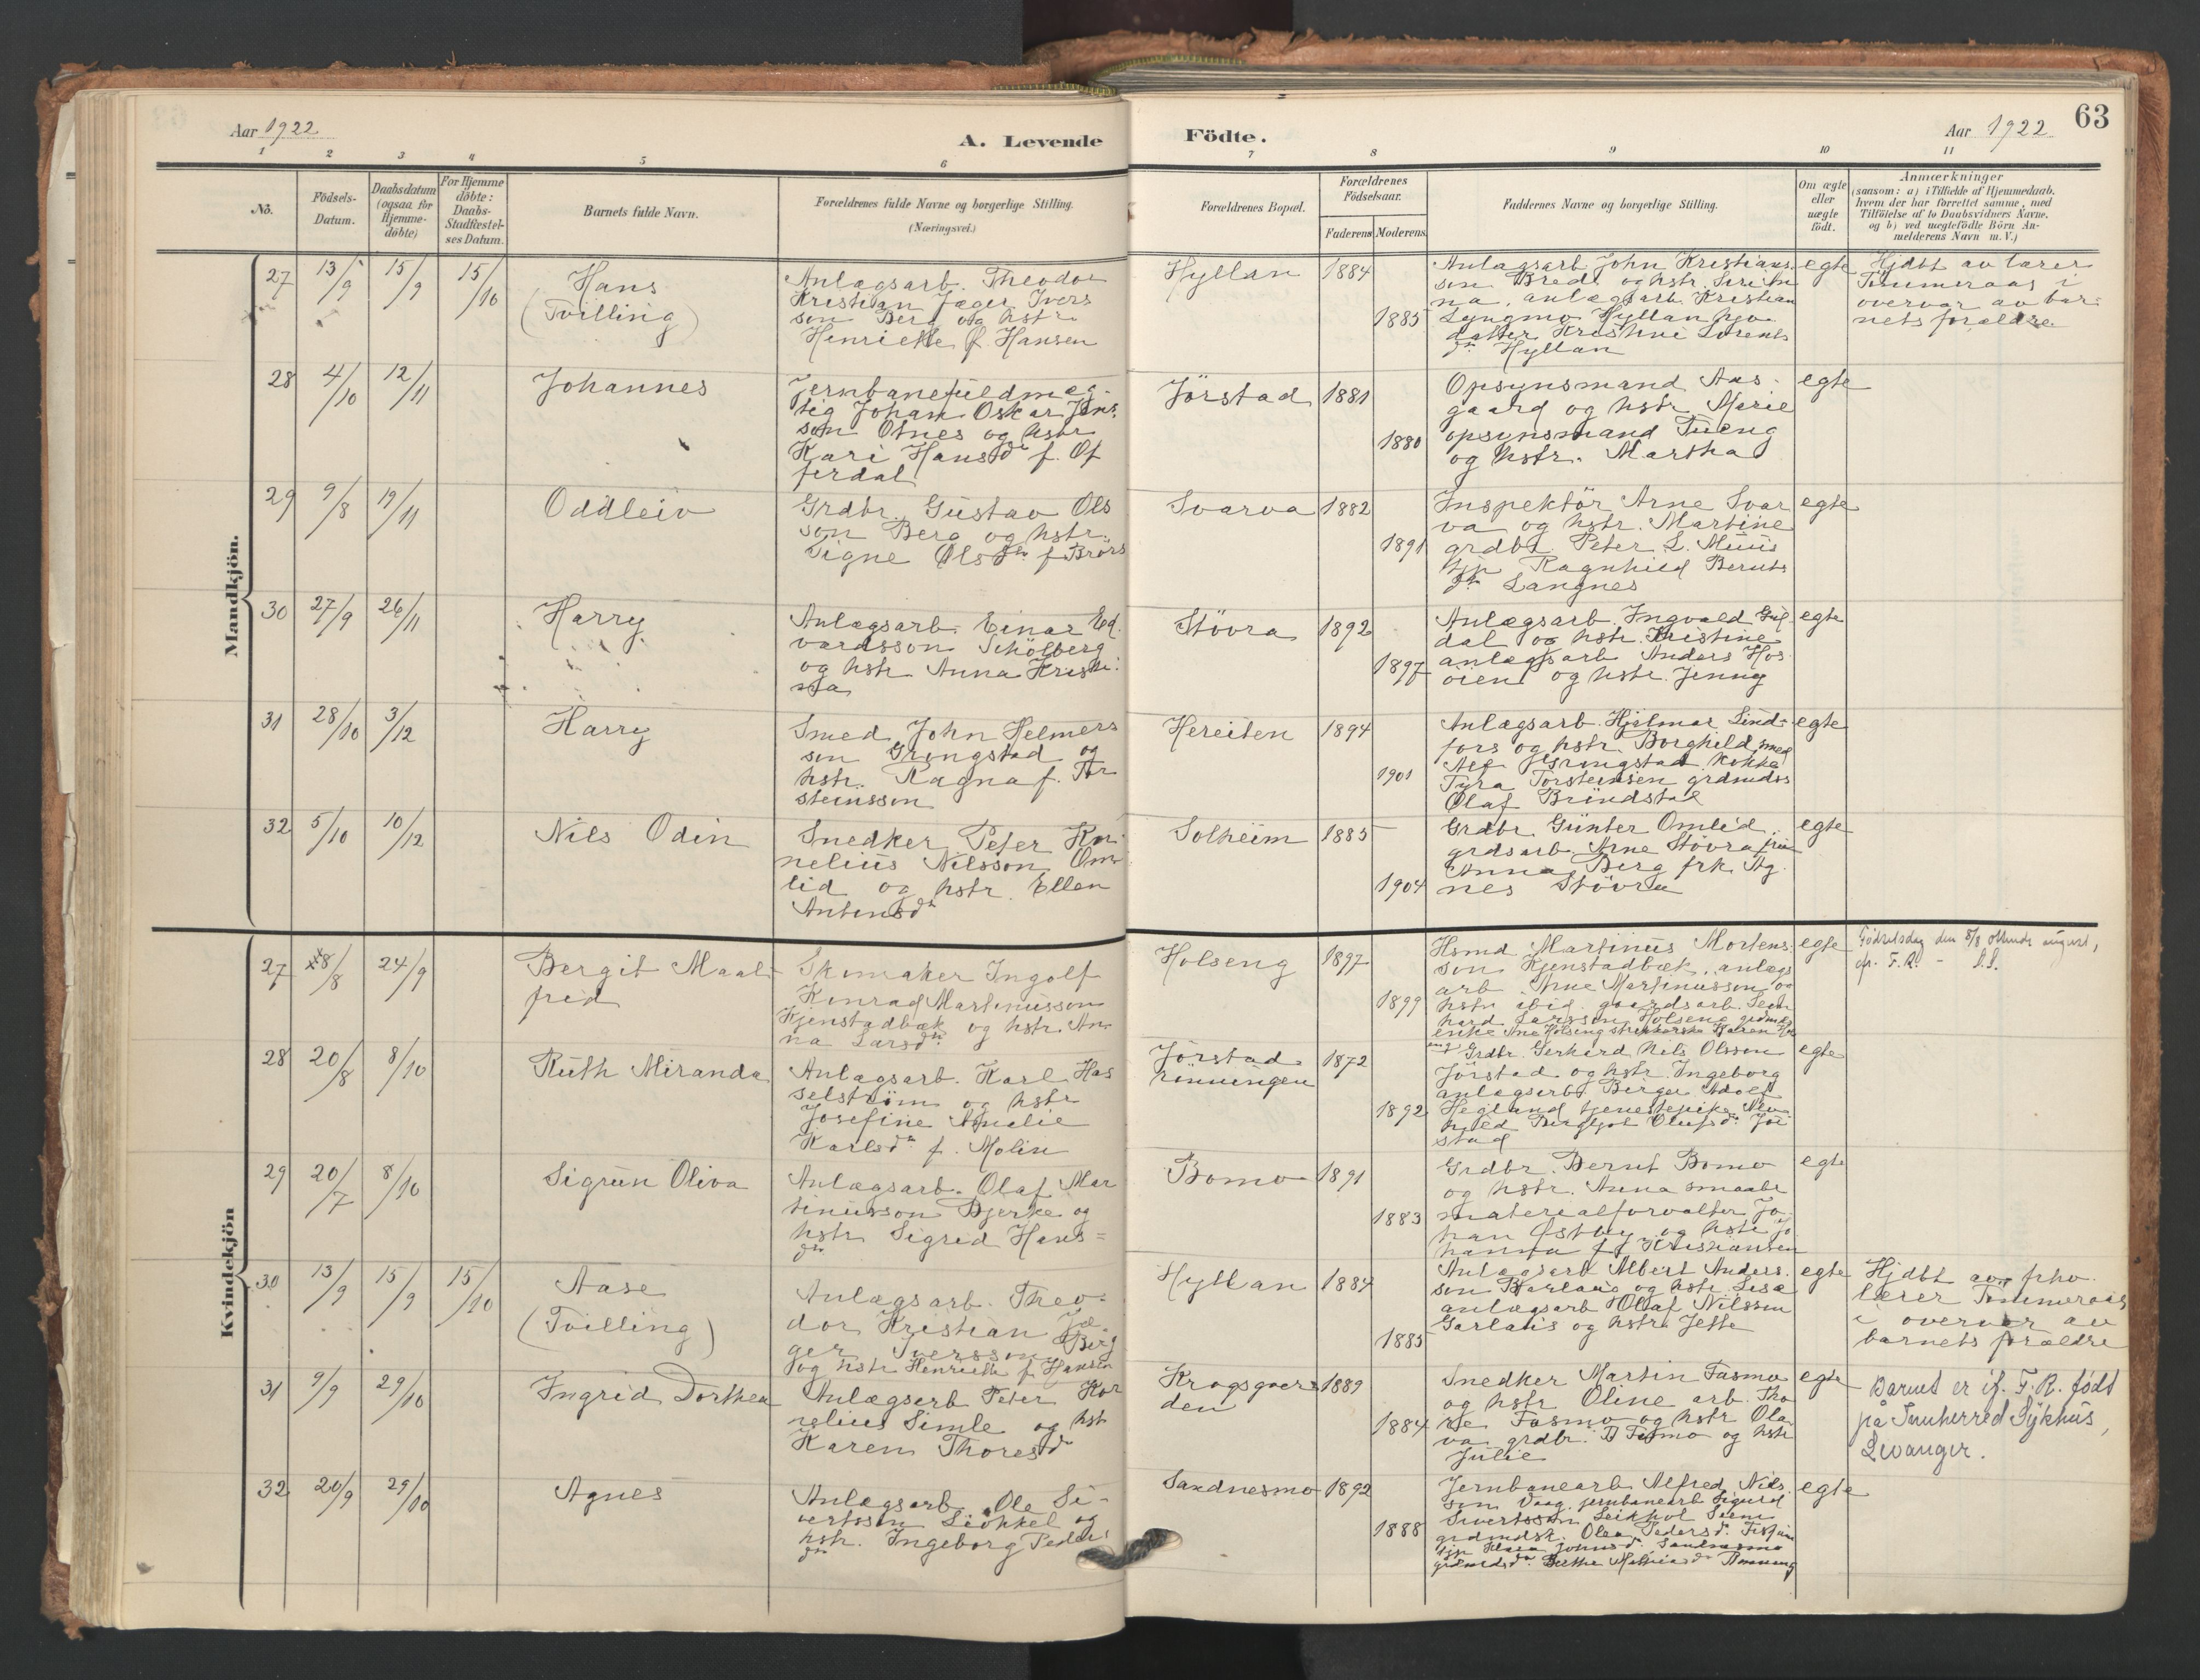 Aar 1922
A. Levende Födte.
Aar 1922
63
1 2 3 4 5 6 7 8 9 10 11
No.
Födsels-
Datum.
Daabsdatum
(ogsaa for
Hjemme-
döbte)
For Hjemme
döbte:
Daabs-
Stadfæstel-
ses Datum.
Barnets fulde Navn.
Forældrenes fulde Navne og borgerlige Stilling.
(Næringsvei.)
Forældrenes Bopæl.
Forældrenes
Födselsaar.
Faderens
Moderens
Faddernes Navne og borgerlige Stilling.
Om ægte
eller
uægte
födt.
Anmærkninger
(saasom: a) i Tilfælde af Hjemmedaab.
hvem der har forrettet samme, med
Tilföielse af to Daabsvidners Navne.
og b) ved uegtefödte Börn An-
melderens Navn m. V.)
Mandkjön.
27 13/9 15/9 15/10
Hans
(Tvilling)
Anlægsarb. Theodor
Kristian Jæger Ivers
son Berg og hstr.
Henriette f. Hansen
Hyllan 1884
1885
Anlagsarb John Kristians
son Brede og hstr.
na, anlægsarb. Kristian
Lyngmo Hyllan
datter Kristine Lorents
dr Hyllan
egte
Hjdbt av lærer
Tömmeraas i
overvær av bar-
nets forældre
28 4/10 12/11
Johannes
Jernbanefuldmæg-
tig Johan Oskar Jens
son Otnes og hstr
Kari Hansdr f. Of
ferdal
Jörstad 1881
1880
Opsynsmand Aas-
gaard og hstr Marie
opsynsmand Tueng
og hstr. Martha
egte
29 9/8 19/11
Oddleiv
Grdbr. Gustav Ols
son Berg og hstr.
Signe Olsdr f. Brörs
Svarva 1882
1891
Inspektör Arne Svar
va og hstr. Martine
grdbr Peter L. Muus
tjp Ragnhild Bernts
dr Langnes
egte
30 27/9 26/11
Harry
Anlægsarb. Einar Ed.
vardsson Schölberg
og hstr Anna Kristi-
na
Stövra 1892
1897
Anlægsarb. Ingvald Gul
dal og hstr. Kristine
anlægsarb Anders Hos
öien og hstr. Jenny
egte
31 28/10 3/12
Harry
Smed John Helmers
son Grongstad og
hstr. Ragna f. Tor
steinsson
Hereiten 1894
1901
Anlægsarb. Hjelmar Lind-
fors og hstr. Borghild smed
Alf Grongstad kokke
Tyra Torsteinsen grdmds
Olaf Bründstad
egte
32 5/10 10/12
Nils Odin
Snedker Peter Kor
nelius Nilsson Om
lid og hstr. Ellen
Antonsdr
Solheim 1885
1904
Grdbr Günter Omlid
grdsarb. Arne Stövra fru
Anna Berg frk Ag
nes Stövra
egte
Kvindekjön
27 8/8 24/9
Bergit Maal-
frid
Skomaker Ingolf
Konrad Martinusson
Kjenstadbæk og hstr An
na Larsdr
Holseng 1897
1899
Hsmd. Martinus Mortens
son Kjenstadbæk, anlægs
arb Arne Martinusson og
hstr ibid. gaardsarb. Leon
hard Larsson Holseng grdmds
enke Ane Holseng strikkerske Karen Hol
seng
egte
Födselsdag den 8/8 ottende august,
cfr. F.R. -
28 20/8 8/10
Ruth Miranda
Anlagsarb. Karl Has
selström og hstr
Josefine Amalie
Karlsdr f. Molin
Jörstad
rönningen 1872
1892
Grdbr. Gerhard Nils Olsson
Jörstad og hstr. Ingeborg
anlægsarb Birger Adolf
Hegland tjenestepike
Bergljot Olufsdr Jör
stad
egte
29 20/7 8/10
Sigrun Oliva
Anlægsarb. Olaf Mar
tinusson Bjerke og
hstr Sigrid Hans=
dr
Bomo 1891
1883
Grdbr. Bernt Bomo
og hstr. Anna smaabr
materialforvalter Jo
han Östby og hstr Jo
hanna f. Kristiansen
egte
30 13/9 15/9 15/10
Aase
(Tvilling)
Anlægsarb. Theo-
dor Kristian Jæ-
ger Iversson Berg
og hstr Henriette f. Hansen
Hyllan 1884
1885
Anlægsarb Albert Anders
son Barlaug og hstr. Lisa
anlægsarb Olaf Nilsson
Garlaus og hstr. Jette
egte
Hjdbt av frhv.
lærer Tömmeraas
i overvær av
barnets forældre
31 9/9 29/10
Ingrid Dorthea
Anlægsarb Peter Kor
nelius Simle og hstr
Karen Thoresdr
Krogsgaar
den 1889
1884
Snedker Martin Fasmo
og hstr Oline arb. Tho
re Fasmo og hstr Ola
va grdbr. Fasmo og hstr
Julie
egte
Barnet er if. F.R. födt
på Innherred Sykhus,
Levanger.
32 20/9 29/10
Agnes
Anlægsarb. Ole Si-
vertsson Livkkel og
hstr. Ingeborg Peders
dr
Sandnesmo 1892
1888
Jernbanearb Alfred Nils
son Vaag, jernbanearb Sigurd
Sivertsson
grdmdsk. Olea Pedersdr.
tjp Klara Johnsdr Sandnesmo
grdmdsdr Berthe Mathiasdr
egte